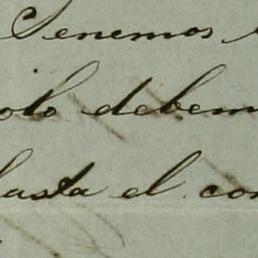 Tenemos
solo debem
hasta el con